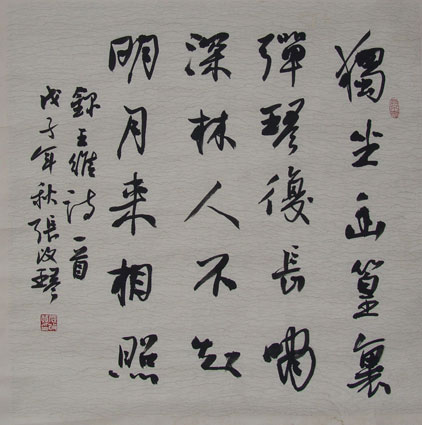 獨坐幽篁裏
彈琴復長嘯
深林人不知
明月来相照
録王維詩一首
戊子年秋張汝琴